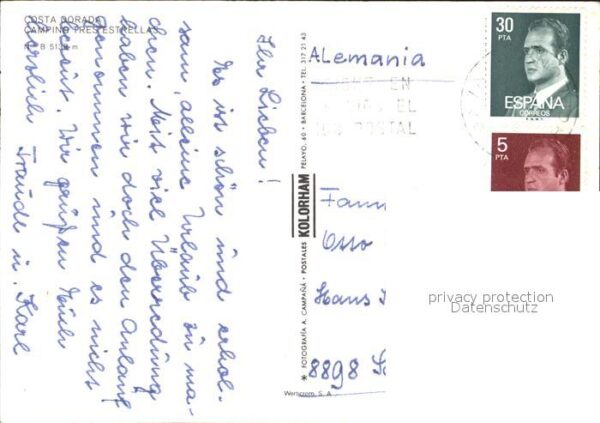 COSTA DORADA
CAMPING TRES ESTRELLAS
Ihr Lieben!
Es ist schön und erhol-
sam, alleine Urlaub zu ma-
chen. Mit viel Überredung
haben wir doch den Anlauf
genommen und es nicht
bereut. Wir grüßen Euch
herzlich Traude u. Karl
* FOTOGRAFIA A. CAMPAÑÁ - POSTALES KOLORHAM PELAYO, 60 • BARCELONA • TEL. 317 21 43
Alemania
EN
EL
POSTAL
30
PTA
ESPAÑA
CORREOS
5
PTA
Fam
Otto
Hans
8898
privacy protection
Datenschutz